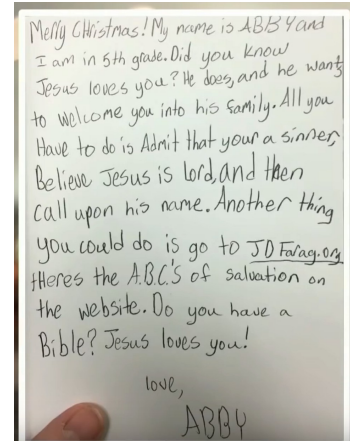 Merry CHristmas! My name is ABBY and
I am in 5th grade. Did you know
Jesus loves you? He does, and he wants
to welcome you into his family. All you
Have to do is Admit that your a sinner,
Believe Jesus is Lord, and then
call upon his name. Another thing
you could do is go to JDFarag.org
tHeres the A.B.C.'s of salvation on
the website. Do you have a
Bible? Jesus loves you!
love,
ABBY